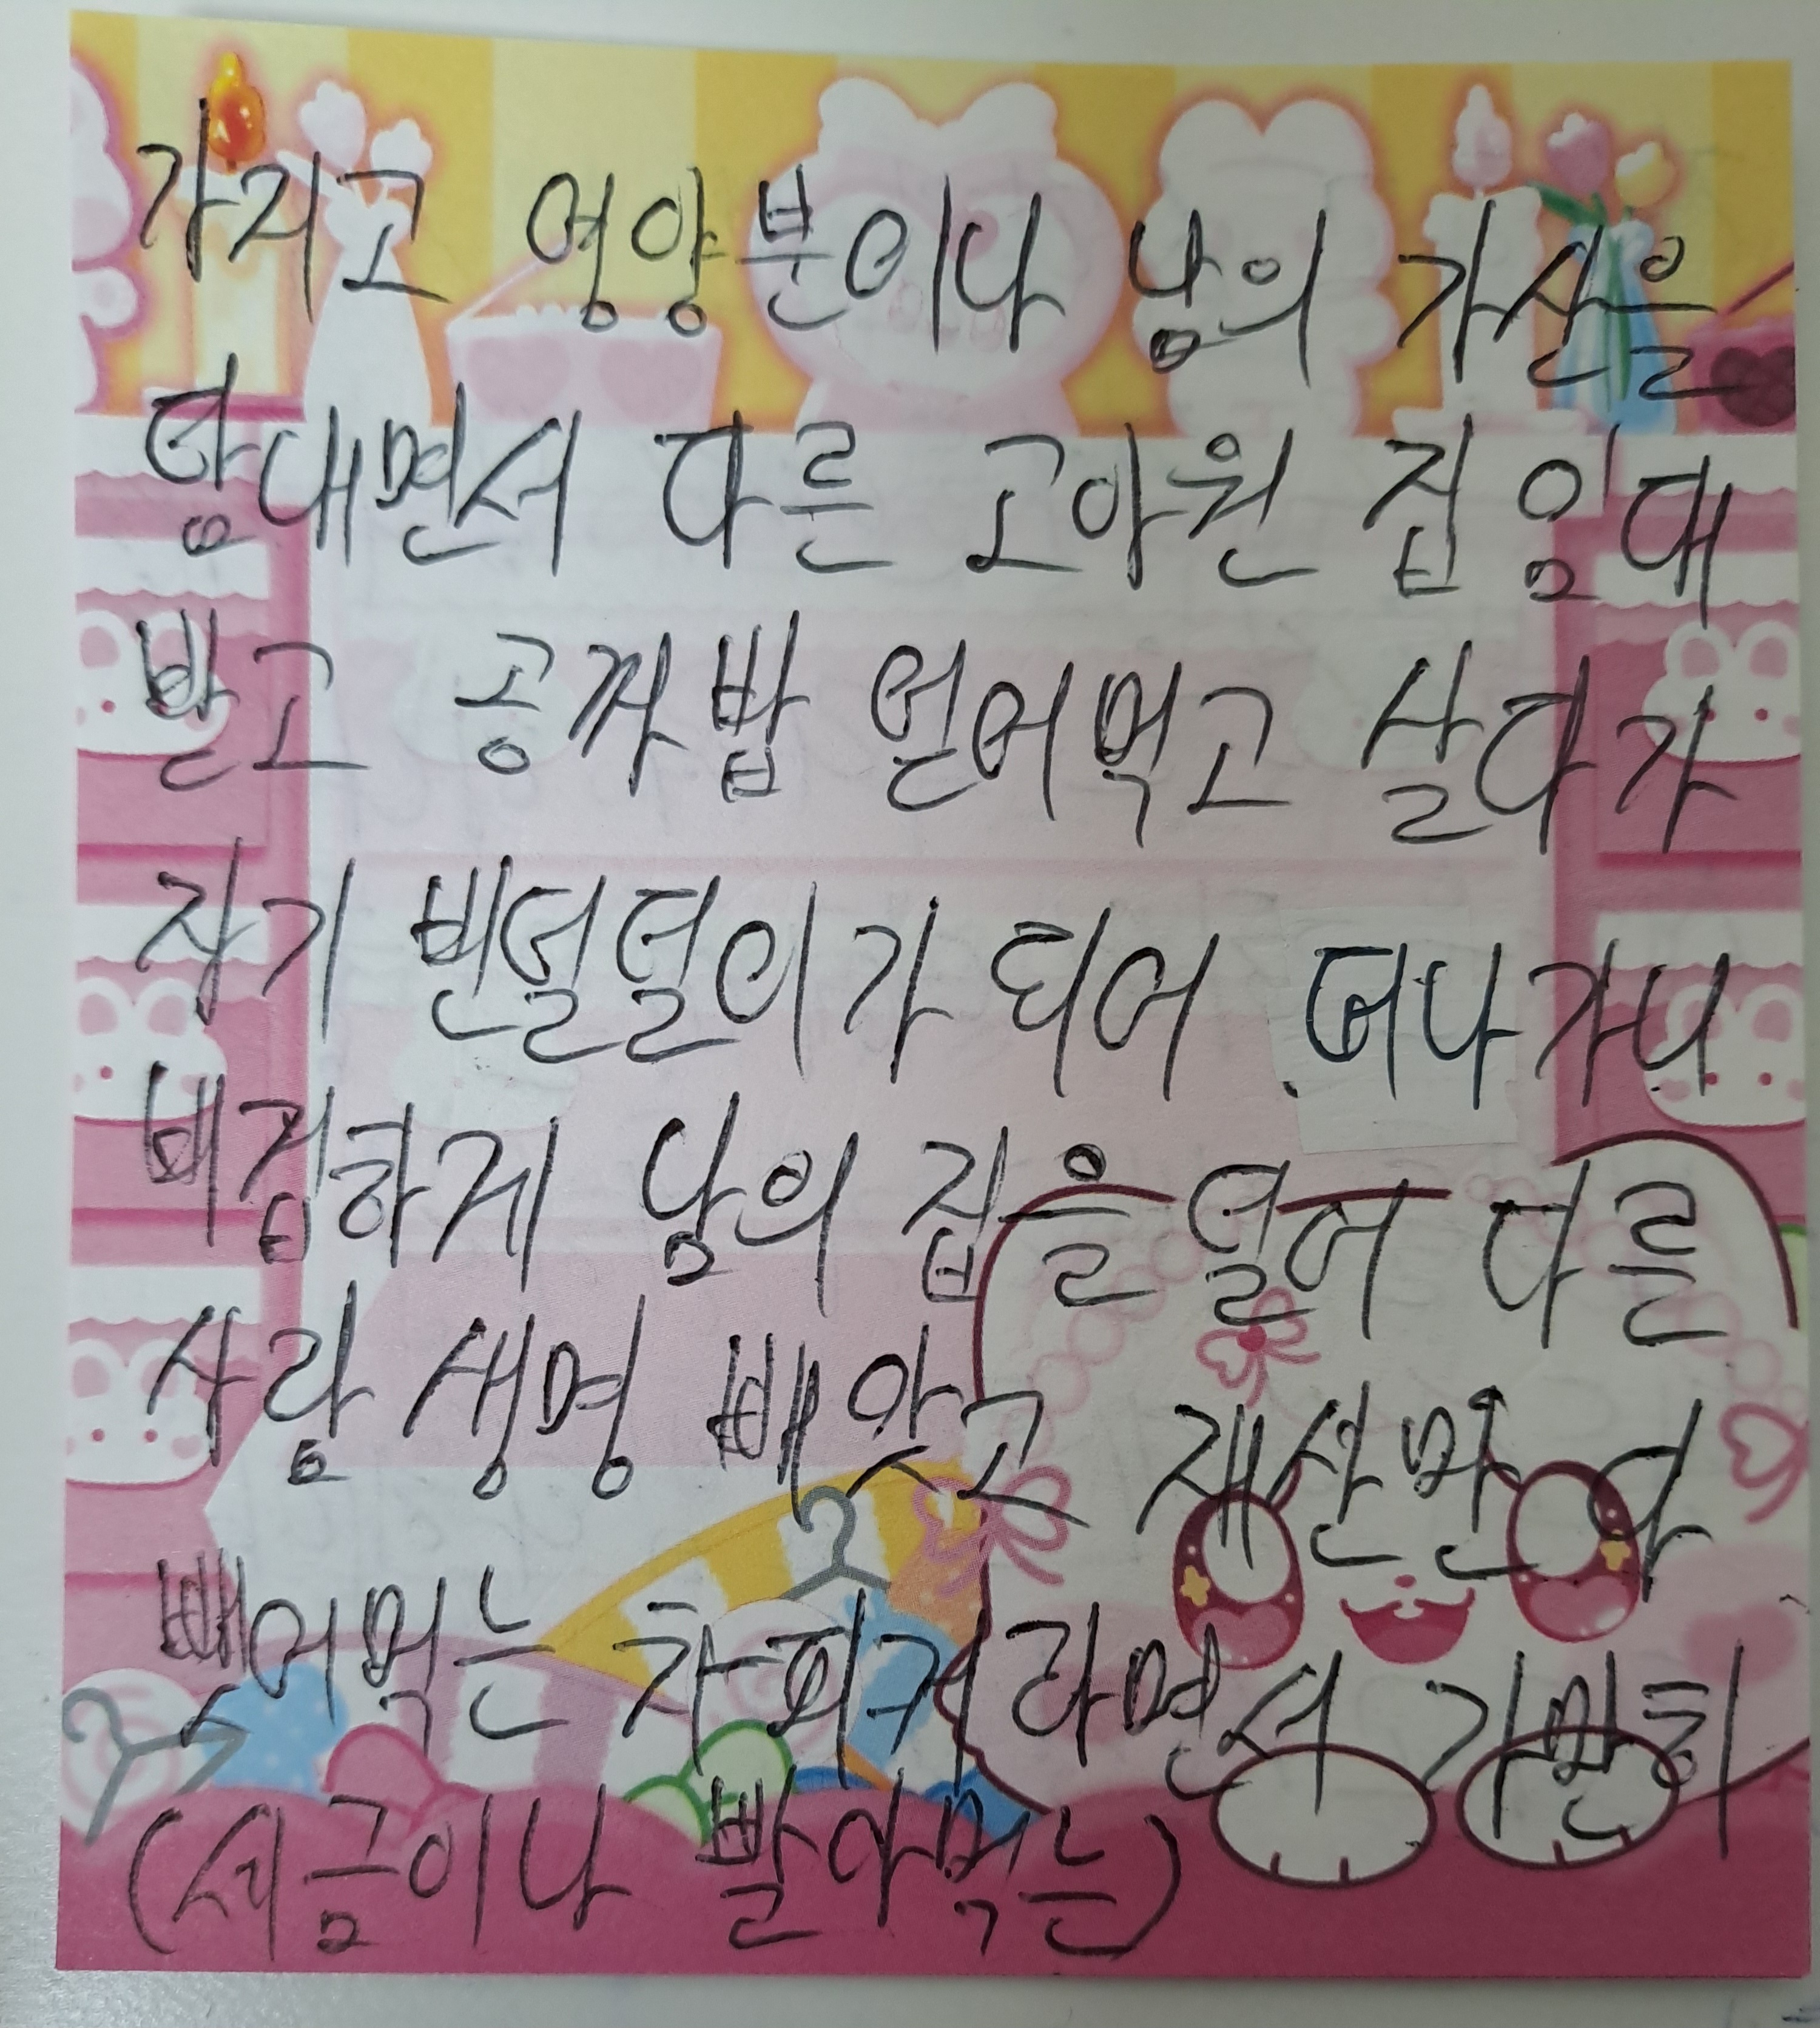 가지고 영양분이나 남의 가산을
탐대면서 다른 고아원 집 임대
받고 공짜밥 얻어먹고 살다가
자기 빈털털이가 되어 떠나가니
비겁하게 남의 집을 털어 다른
사람 생명 빼앗고 재산만 다
빼어먹는 차피커라면서 가만히
(세금이나 빨아먹는)